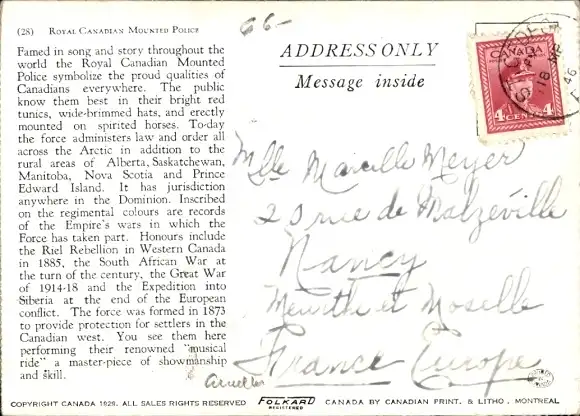 66-
(28) ROYAL CANADIAN MOUNTED POLICE
Famed in song and story throughout the
world the Royal Canadian Mounted
Police symbolize the proud qualities of
Canadians everywhere. The public
know them best in their bright red
tunics, wide-brimmed hats, and erectly
mounted on spirited horses. To-day
the force administers law and order all
across the Arctic in addition to the
rural areas of Alberta, Saskatchewan,
Manitoba, Nova Scotia and Prince
Edward Island. It has jurisdiction
anywhere in the Dominion. Inscribed
on the regimental colours are records
of the Empire's wars in which the
Force has taken part. Honours include
the Riel Rebellion in Western Canada
in 1885, the South African War at
the turn of the century, the Great War
of 1914-18 and the Expedition into
Siberia at the end of the European
conflict. The force was formed in 1873
to provide protection for settlers in the
Canadian west. You see them here
performing their renowned "musical
ride" a master-piece of showmanship
and skill.
ADDRESS ONLY
Message inside
CANADA
4 CENTS 4
18
46
Mlle Marcelle Meyer
20 rue de Malzéville
Nancy
Meurthe et Moselle
France Europe
COPYRIGHT CANADA 1929. ALL SALES RIGHTS RESERVED FOLKARD REGISTERED CANADA BY CANADIAN PRINT. & LITHO. MONTREAL